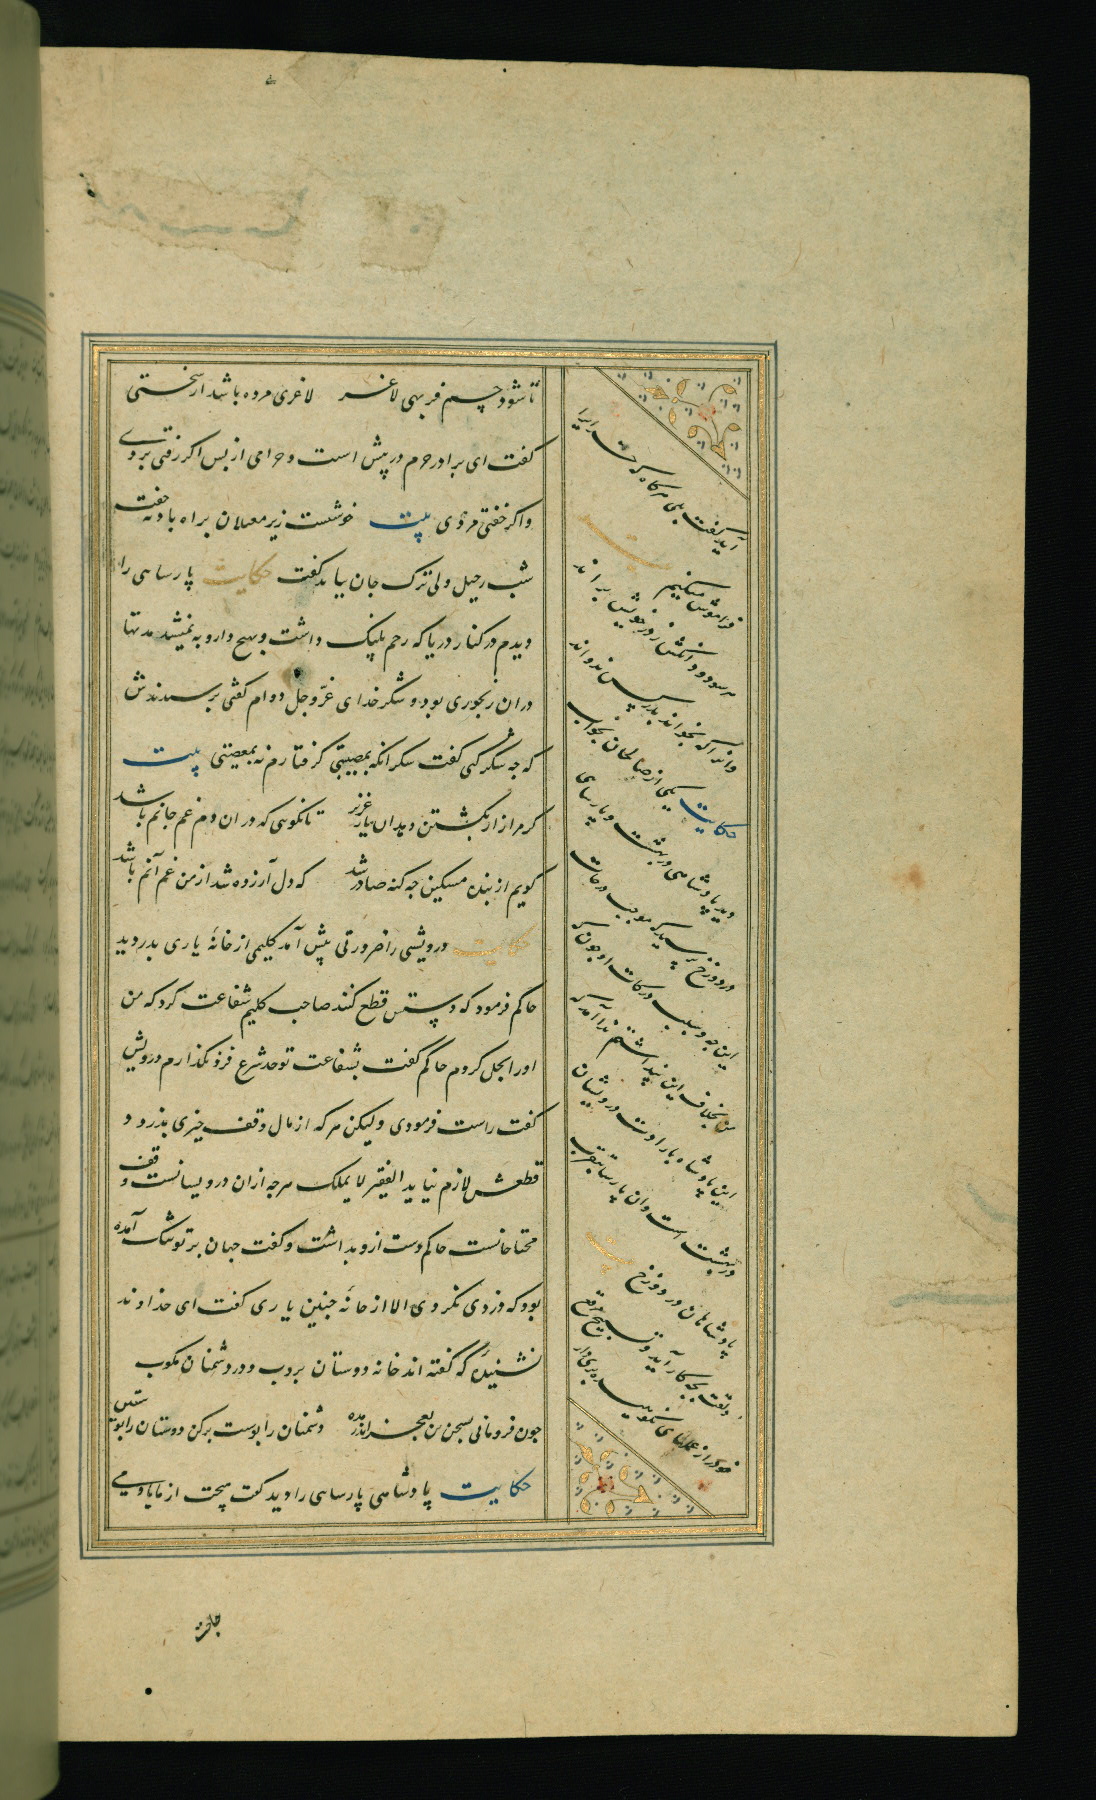 تا شود جسم فربهی لاغر لاغری مرده باشد از سختی
گفت ای برادر حرم در پیش است و حرامی از پس اگر رفتی بردی
و اگر خفتی مردی بیت خوشست زیر مغیلان براه بادیه خفت
شب رحیل ولی ترک جان بباید گفت حکایت پارسایی را
دیدم در کنار دریا که زخم پلنگ داشت و بهیچ دارو به نمیشد مدتها
دران رنجوری بود و شکر خدای عزّ و جل دوام گفتی پرسیدندش
که چه شکر کنی گفت شکر انکه بمصیبتی گرفتارم نه بمعصیتی بیت
گر مرا زار بکشتن دهد ان یار عزیز تا نگویی که دران دم غم جانم باشد
گویم از بنده مسکین چه گنه صادر شد که دل آزرده شد از من غم آنم باشد
حکایت درویشی را ضرورتی پیش آمد گلیمی از خانهٔ یاری بدزدید
حاکم فرمود که دستش قطع کنند صاحب گلیم شفاعت کرد که من
اورا بحل کردم حاکم گفت بشفاعت تو حد شرع فرو نگذارم درویش
گفت راست فرمودی ولیکن هر که از مال وقف چیزی بدزدد
قطعش لازم نیاید الفقیر لا یملک هرچه ازان درویشانست وقف
محتاجانست حاکم دست ازو بداشت و گفت جهان بر تو تنگ آمده
بود که دزدی نکردی الا از خانهٔ چنین یاری گفت ای خداوند
نشنیدهٔ که گفته اند خانه دوستان بروب و در دشمنان مکوب
چون فرومانی بسختی تن بعجز اندر مده دشمنان را پوست برکن دوستان را پوستین
حکایت پادشاهی پارسایی را دید گفت هیچت از ما یاد می
آید گفت بلی هرگاه که خدایرا
فراموش میکنم
بیت
هر سو دود آنکش ز در خویش براند
وانرا که بخواند بدر کس ندواند
حکایت یکی از صالحان بخواب
دید پادشاهی در بهشت و پارسای
در دوزخ پرسید که موجب درجات
این چه و سبب درکات او چون که
من بخلاف این پنداشتم ندا آمد که
این پادشاه بارادت درویشان
در بهشت است و ان پارسا بتقرب
پادشاهان در دوزخ
بیت
دلقت بچه کار آید و تسبیح و مرقع
خود را ز عملهای نکوهیده بری دار